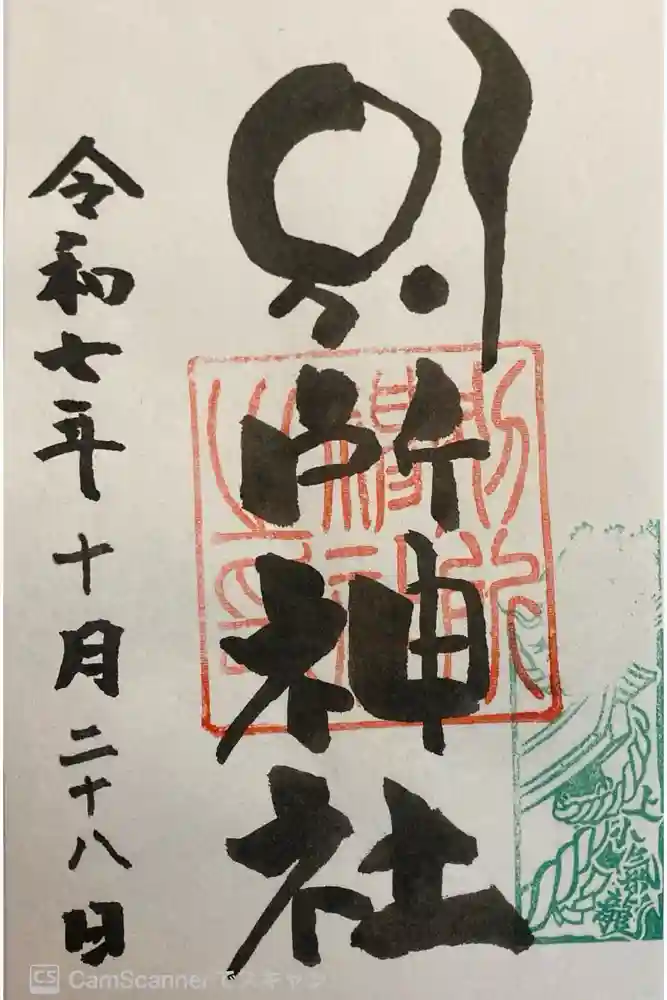 別所神社
令和七年十月二十八日
CS CamScannerでスキャン